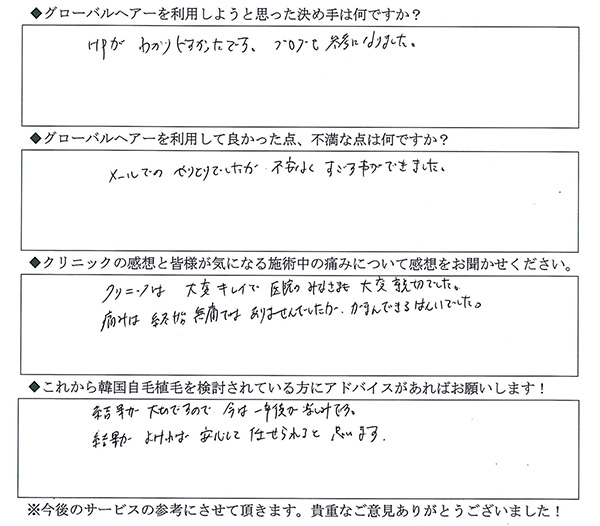 ◆グローバルヘアーを利用しようと思った決め手は何ですか？
HPが わかりやすかったです、 ブログも 参考になりました。
◆グローバルヘアーを利用して良かった点、不満な点は何ですか？
メールでの やりとりでしたが 不安なく すごす事ができました。
◆クリニックの感想と皆様が気になる施術中の痛みについて感想をお聞かせください。
クリニックは 大変キレイで 医院の みなさまも 大変 親切でした。
痛みは 無痛では ありませんでしたが、がまんできるはんいでした。
◆これから韓国自毛植毛を検討されている方にアドバイスがあればお願いします！
結果が 大切ですので 今は 一年後が 楽しみです。
結果が よければ 安心して 任せられると 思います.
※今後のサービスの参考にさせて頂きます。貴重なご意見ありがとうございました！